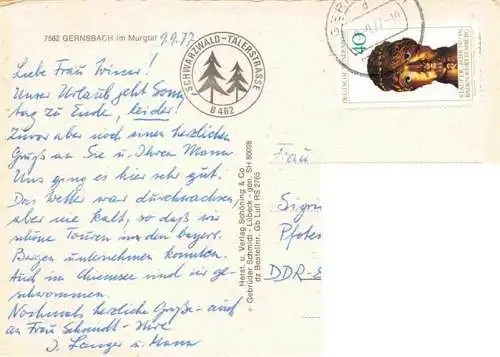 7562 GERNSBACH im Murgtal 9.9.77
SCHWARZWALD-TÄLERSTRASSE
B 462
Liebe Frau Winser!
Unser Urlaub geht Sonn
tag zu Ende, leider!
Zuvor aber noch einen herzlichen
Gruß an Sie u. Ihren Mann.
Uns ging es hier sehr gut.
Das Wetter war durchwachsen,
aber nie kalt, so daß wir
schöne Touren in den bayer.
Bergen unternehmen konnten.
Auch im Chiemsee sind wir ge-
schwommen.
Nochmals herzliche Grüße - auch
an Frau Schmidt-
J. Langer u. Mann
Herst. u. Verlag Schöning & Co
+ Gebrüder Schmidt - Lübeck - gen. SH 80098
dz Bestellnr. Gb Luft RS 2765
GER
40
DEUTSCHE BUNDESPOST
BADEN-WÜRTTEMBERG
Frau
Sigri
Pfoten
DDR-